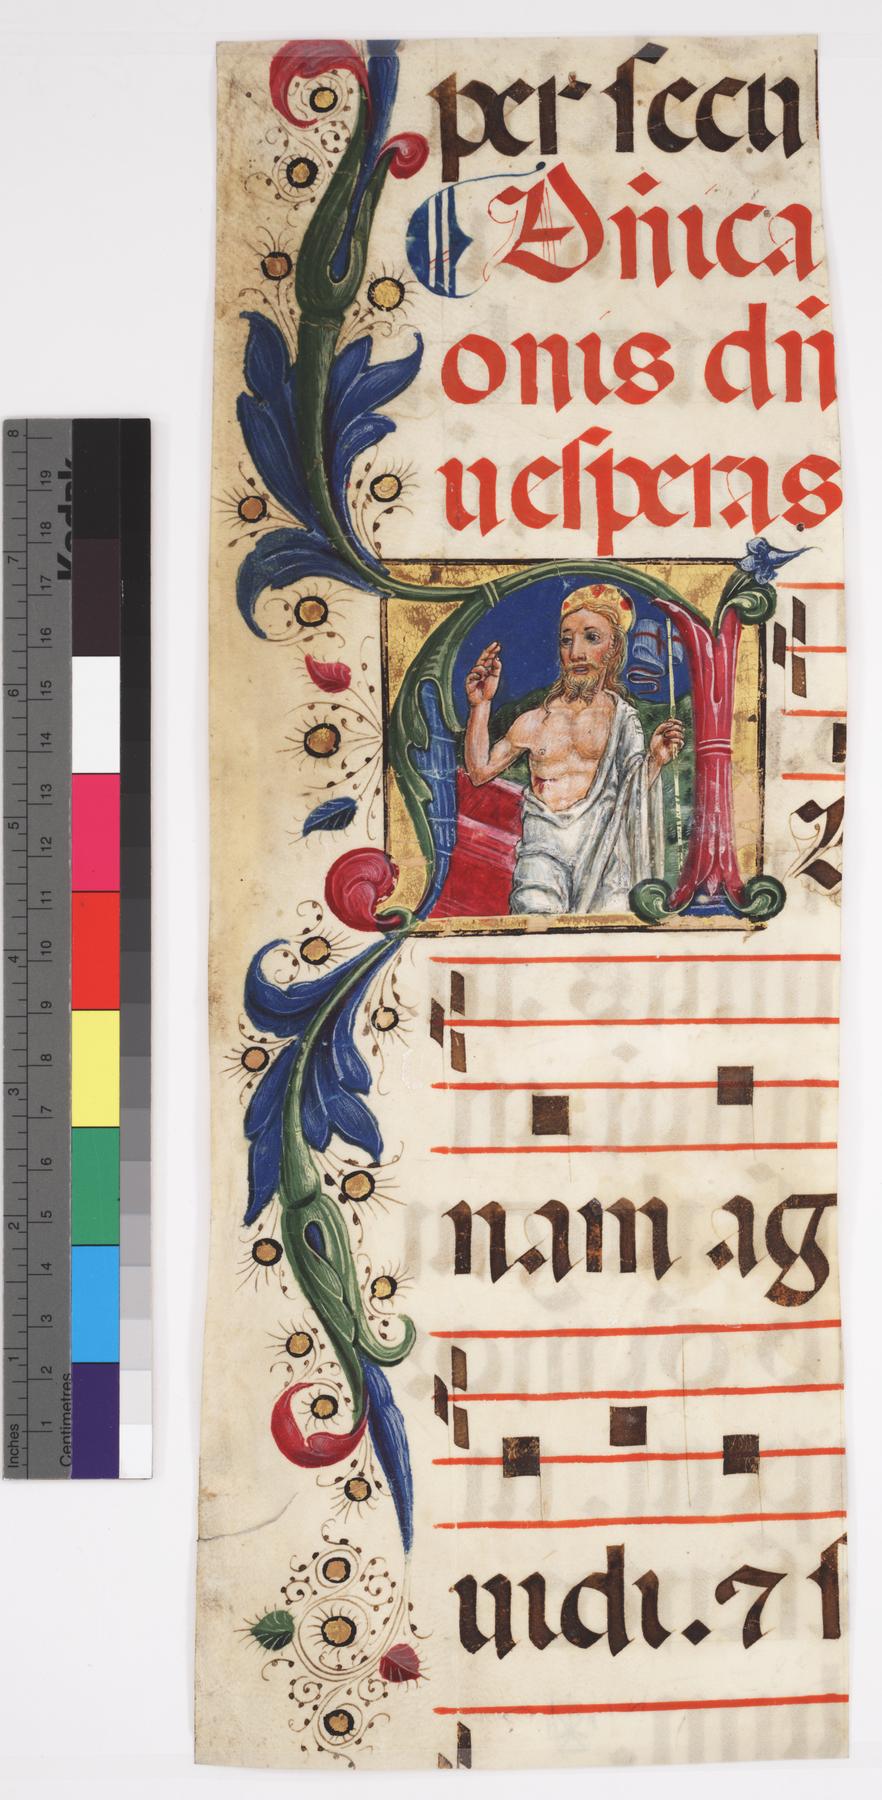 per secu
Dñica
onis dñi
uesperas
A
nam ag
uidi. ⁊ s
Kodak
Inches
Centimetres
1 2 3 4 5 6 7 8
1 2 3 4 5 6 7 8 9 10 11 12 13 14 15 16 17 18 19